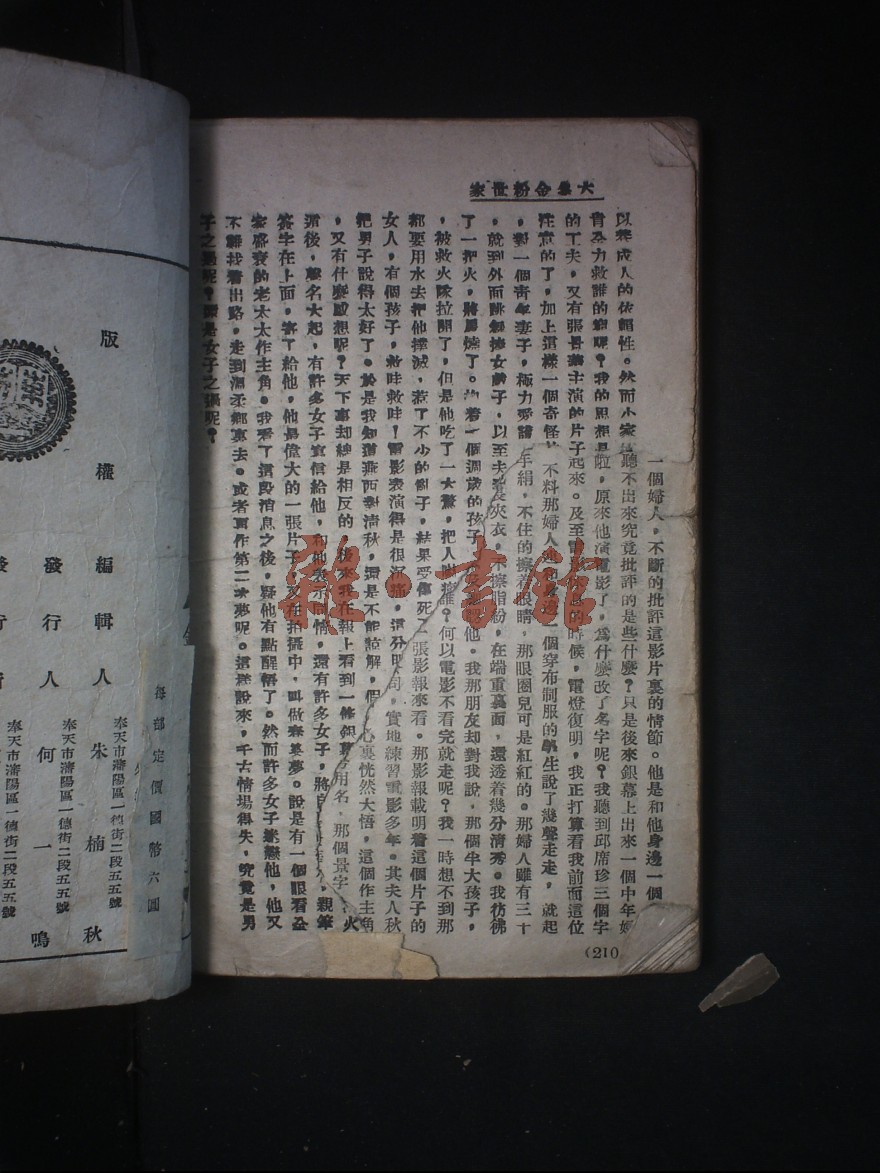 大集金粉世家
一個婦人，不斷的批評這影片裏的情節。他是和他身邊一個
以養成人的依賴性。然而小家
聽不出來究竟批評的是些什麼？只是後來銀幕上出來一個中年婦
肯盡力救誰的
呢？我的思想是
啦，原來他演電影了，爲什麼改了名字呢？我聽到邱席珍三個字
的工夫，又有張
主演的片子
起來。及至電影休息的時候，電燈復明，我正打算看我前面這位
性意的了，加上這樣一個奇怪
不料那婦人
個穿布制服的學生說了幾聲走走，就起
，對一個青年妻子，極力愛護
手絹，不住的擦着眼睛，那眼圈兒可是紅紅的。那婦人雖有三十
，就到外面跳舞捧女戲子，以至夫
夾衣，不擦脂粉，在端重裏面，還透着幾分清秀。我彷彿
了一把火，將屋燒了。抱着一個週歲的孩子
他。我那朋友却對我說，那個半大孩子，
，被救火隊拉開了，但是他吃了一大驚，把人叫誰？何以電影不看完就走呢？我一時想不到那
都要用水去把他撲滅，惹了不少的亂子，結果受傷死
張影報來看。那影報載明着這個片子的
女人，有個孩子，救哇救哇！電影表演得是很沉痛，這分明同，實地練習電影多年。其夫人秋
把男子說得太好了。於是我知道燕西對清秋，還是不能諒解，但
心裏恍然大悟，這個作主角
，又有什麼感想呢？天下事却總是相反的，後來我在報上看到一條銀幕
用名，那個景字
火
後，聲名大起，有許多女子寫信給他，和他表示同情，還有許多女子，將
親筆
簽字在上面，寄了給他，他是偉大的一張片子，又在拍攝中，叫做春婆夢。說是有一個眼看全
家盛衰的老太太作主角。我看了這段消息之後，疑他有點醒悟了。然而許多女子崇戀他，他又
不難找着出路，走到溫柔鄉裏去。或者再作第二次夢呢。這樣說來，千古情場得失，究竟是男
子之過呢？還是女子之過呢？
(210
版權
編輯人 朱楠秋
奉天市瀋陽區一德街二段五五號
發行人 何一鳴
奉天市瀋陽區一德街二段五五號
發行
奉天市瀋陽區一德街二段五五號
每部定價國幣六圓
雅·書館